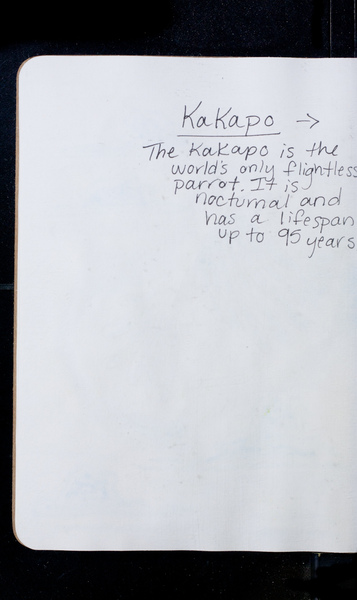 KaKapo →
The KaKapo is the
world's only flightless
parrot. It is
nocturnal and
has a lifespan
up to 95 years